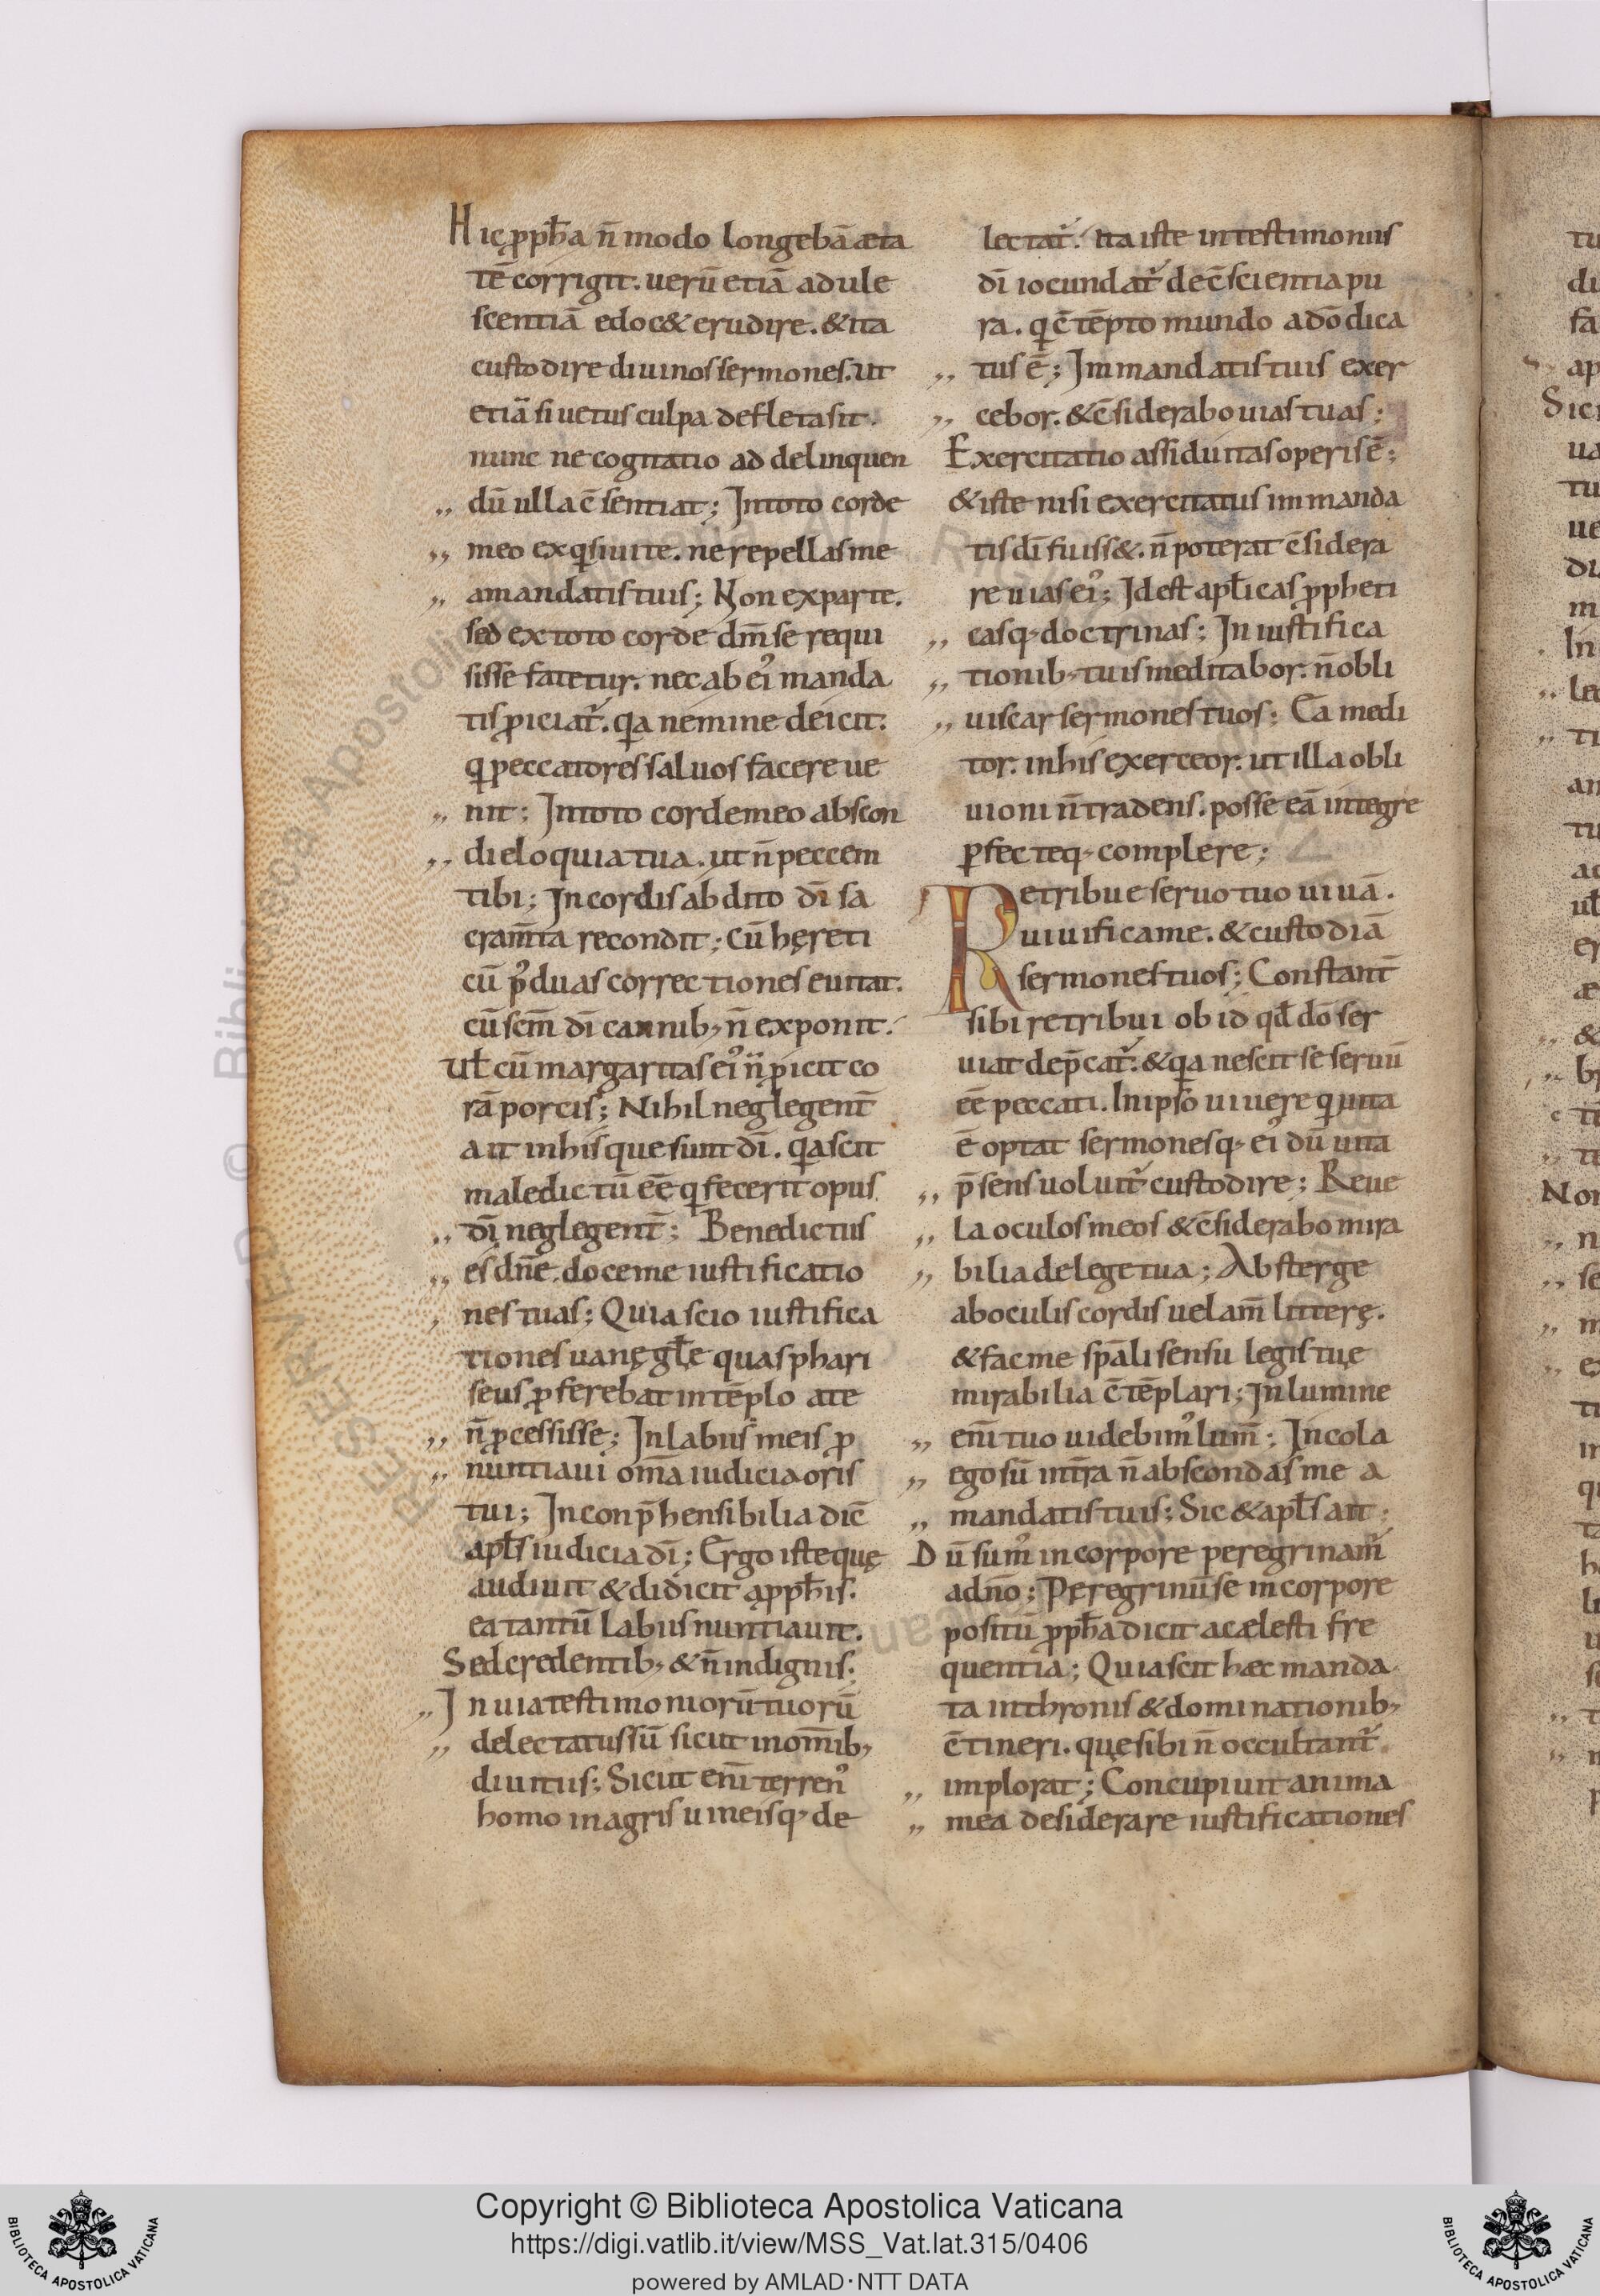 Hic ꝓph̄a n̄ modo longebā æta
tē corrigit. uerū etiā adule
scentiā edoc& erudire. & ita
custodire diuinos sermones. ut
etiā si uetus culpa defleta sit.
nunc ne cogitatio ad delinquen
,, dū ulla c̄sentiat; In toto corde
,, meo exq̇siui te. ne repellas me
,, a mandatis tuis; Non ex parte.
sed ex toto corde dn̄m se requi
sisse fatetur. nec ab ei᾽ manda
tis ꝓiciat᷑. qa neminē deicit.
q̇ peccatores saluos facere ue
,, nit; In toto corde meo abscon
,, di eloquia tua. ut n̄ peccem
tibi; In cordis abdito dī sa
cram̄ta recondit; Cū hęreti
cū p᾽ duas correctiones euitat.
cū scm̄ dī canib; n̄ exponit.
Ul̄ cū margaritas ei᾽ n̄ ꝓicit co
rā porcis; Nihil neglegent̄
ait in his que sunt dī. qa scit
maledictū eē q̇ fecerit opus
,, dī neglegent̄; Benedictus
,, es dn̄e. doce me iustificatio
, nes tuas; Quia scio iustifica
tiones uanę gl̄ę quas phari
seus ꝓferebat in tēplo a te
,, n̄ ꝓcessisse; In labiis meis ꝓ
,, nuntiaui om̄a iudicia oris
tui; Inconp̄hensibilia dic̄
apl̄s iudicia dī; Ergo iste quę
audiuit & didicit a ꝓph̄is.
ea tantū labiis nuntiauit.
Sed credentib; & n̄ indignis.
,, In uia testimoniorū tuorū
,, delectatus sū sicut in om̄ib;
diuitiis; Sicut enī terren᾽
homo in agris uineisq; de
lectat᷑. ita iste in testimoniis
dī iocundat᷑ de c̄scientia pu
ra. q̇ c̄tēpto mundo a dō dica
,, tus ē; Im mandatis tuis exer
,, cebor. & c̄siderabo uias tuas;
Exercitatio assiduitas operis ē;
& iste nisi exercitatus im manda
tis dī fuiss&. n̄ poterat c̄sidera
re uias ei᾽; Id est apl̄icas ꝓpheti
,, casq; doctrinas; In iustifica
,, tionib; tuis meditabor. n̄ obli
,, uiscar sermones tuos; Ea medi
tor. in his exerceor. ut illa obli
uioni n̄ tradens. posse eā integre
ꝑfecteq; complere;
Retribue seruo tuo uiuā.
uiuifica me. & custodiā
sermones tuos; Constant̄
sibi retribui ob id qd̄ dō ser
uiat dep̄cat᷑. & qa nescit se seruū
eē peccati. In ipso uiuere q̇ uita
ē optat sermonesq; ei᾽ dū uita
,, p̄sens uoluit᷑ custodire; Reue
,, la oculos meos & c̄siderabo mira
,, bilia de lege tua; Absterge
ab oculis cordis uelam̄ litterę.
& fac me spāli sensu legis tuę
mirabilia c̄tēplari; In lumine
,, enī tuo uidebim᾽ lum̄; Incola
,, ego sū in tr̄a n̄ abscondas me a
,, mandatis tuis; Sic & apl̄s ait;
Dū sum᾽ in corpore peregrinam᷑
a dn̄o; Peregrinū se in corpore
positū ꝓph̄a dicit a cælesti fre
quentia; Quia scit hæc manda
ta in thronis & dominationib;
c̄tineri. quę sibi n̄ occultant᷑
,, implorat; Concupiuit anima
,, mea desiderare iustificationes
Copyright © Biblioteca Apostolica Vaticana
https://digi.vatlib.it/view/MSS_Vat.lat.315/0406
powered by AMLAD·NTT DATA
BIBLIOTECA APOSTOLICA VATICANA
BIBLIOTECA APOSTOLICA VATICANA